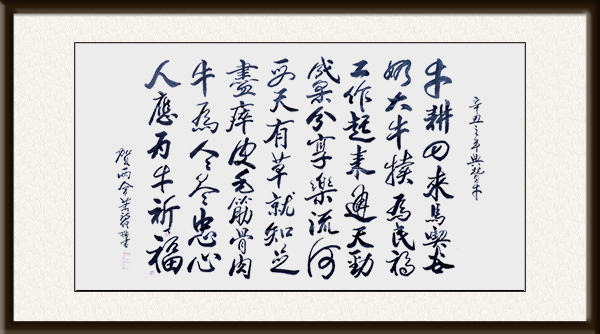 辛丑之年興贊牛
牛耕田來馬
大牛犢為民
工作起來通天勁
成果分享樂流河
天有草就知足
盡瘁皮毛筋骨肉
牛為人人盡忠心
人應為牛祈福